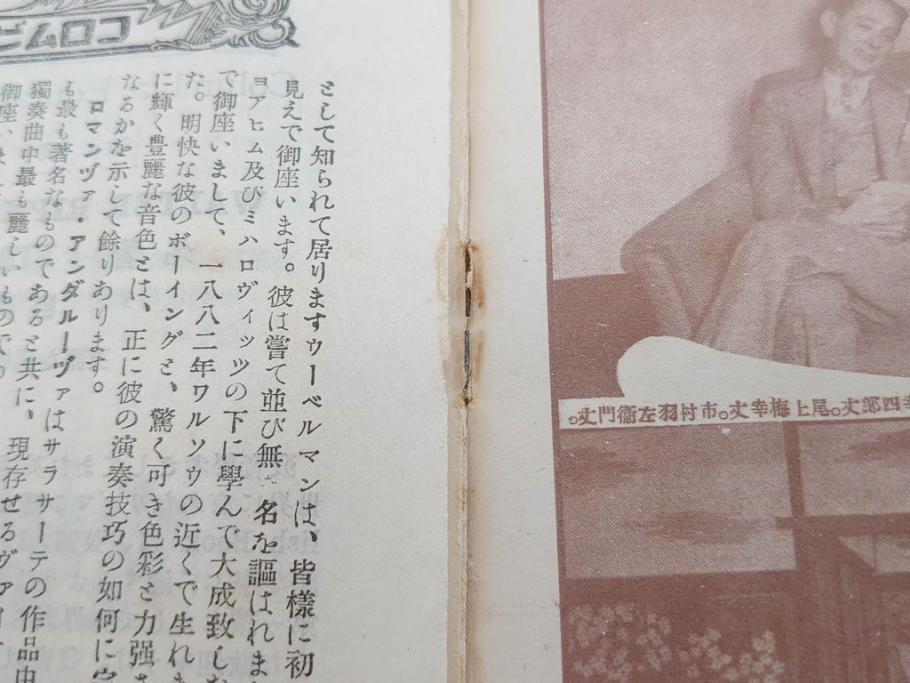 コロムビ
として知られて居りますウーベルマンは、皆樣に初
見えで御座います。彼は嘗て並び無 名を謳はれま
ヨアヒム及びミハロヴィッツの下に學んで大成致しな
で御座いまして、一八八二年ワルソウの近くで生れま
た。明快な彼のボーイングと、驚く可き色彩と力强さ
に輝く豊麗な音色とは、正に彼の演奏技巧の如何に完
なるかを示して餘りあります。
ロマンヴァ・アンダルーヅァはサラサーテの作品中
も最も著名なものであると共に、現存せるヴァイ
獨奏曲中最も麗しいもので。
御座いまし
幸四郎丈。尾上梅幸丈。市村羽左衞門丈。